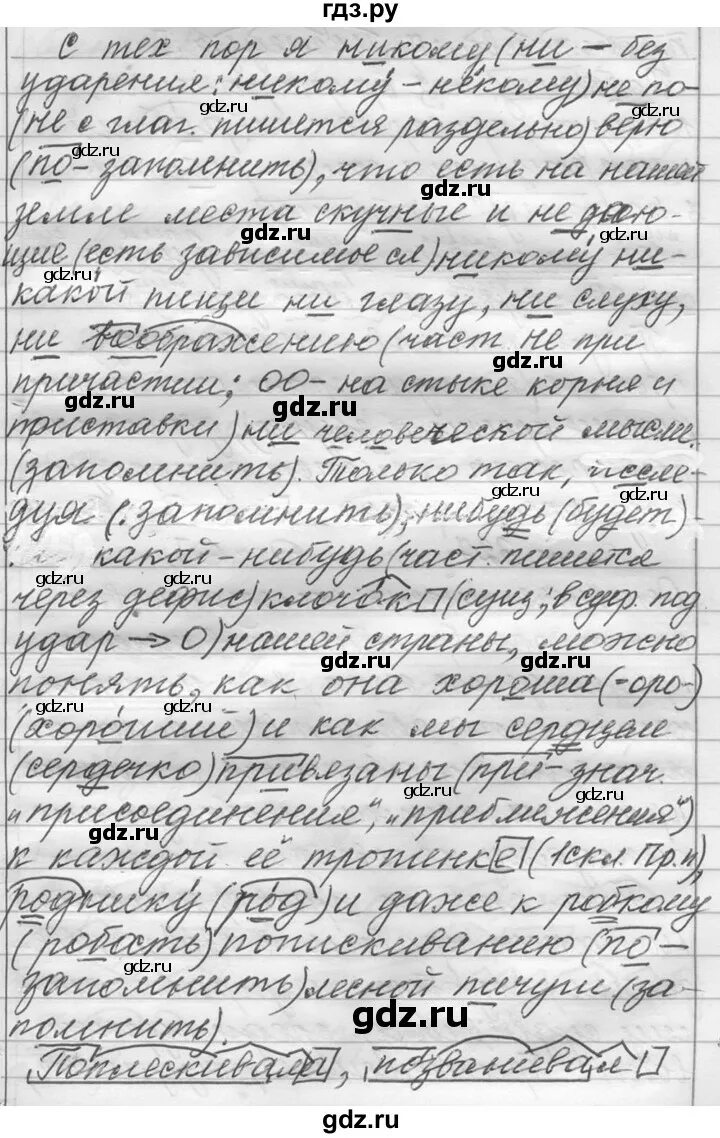 гдз.ру
С тех пор я никому (ни – без
ударения: никому – некому) не по-
(не с глаг. пишется раздельно) верю
(по - запомнить), что есть на нашей
земле места скучные и не даю-
щие (есть зависимое сл) никому ни-
какой пищи ни глазу, ни слуху,
ни воображению (част. не при
причастии; ОО – на стыке корня и
приставки) ни человеческой мысли.
(запомнить). Только так, иссле-
дуя (: запомнить), нибудь (будет) -
какой-нибудь (част. пишется
через дефис) клочок (сущ; в суф. под
удар → О) нашей страны, можно
понять, как она хороша (-оро-)
(хороший) и как мы сердцем
(сердечко) привязаны (при - знач.
"присоединения", "приближения")
к каждой её тропинке (1скл. Пр.п),
роднику (род) и даже к робкому
(робость) попискиванию (по -
запомнить) лесной пичуги (за-
помнить).
Поплескивала, позванивал
gdz.ru